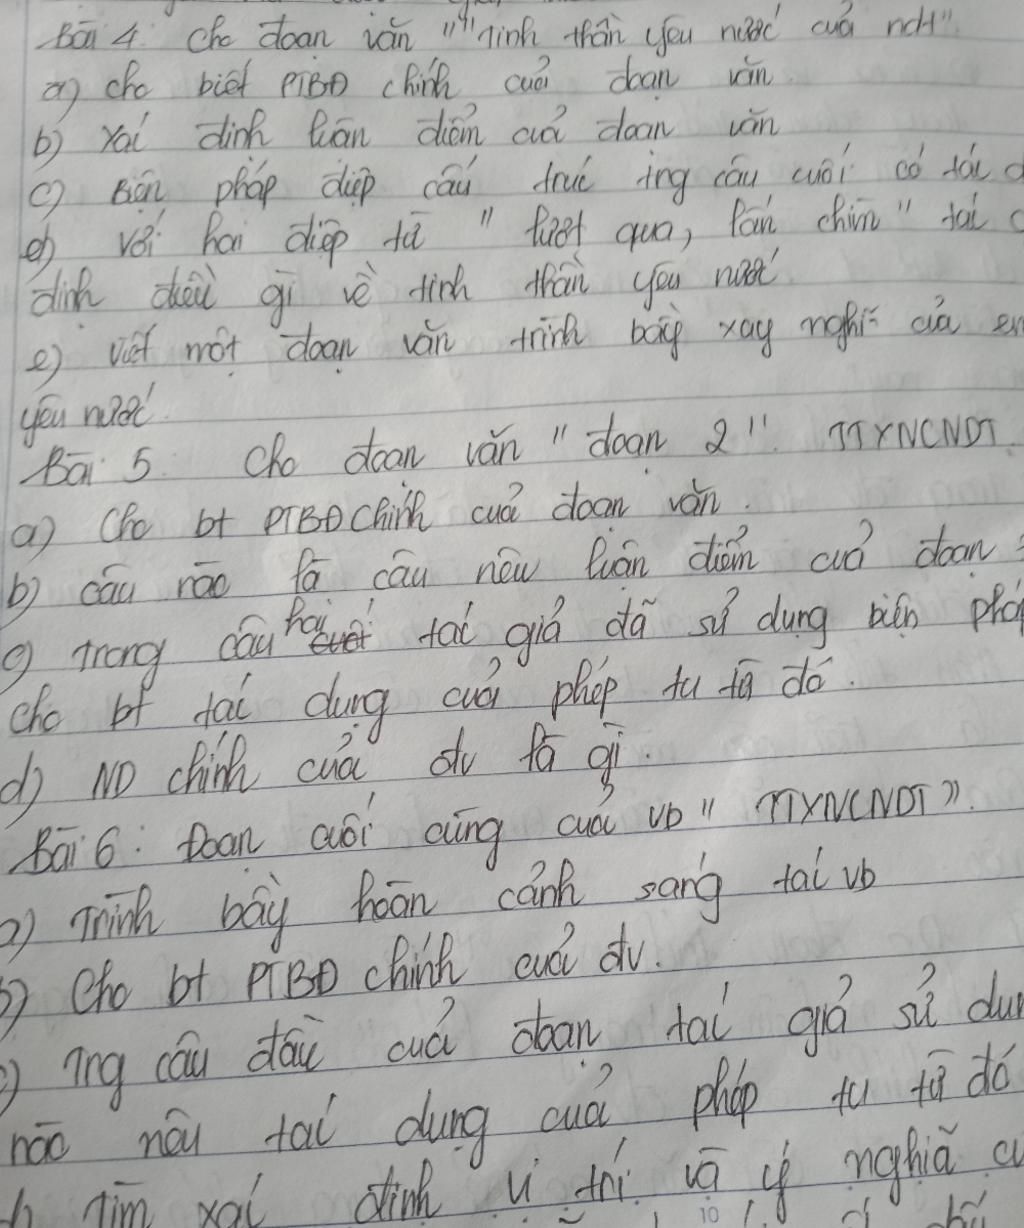 Bài 4: Cho đoạn văn "Tinh thần yêu nước của ndt"
a) cho biết PTBĐ chính của đoạn văn
b) Xác định luận điểm của đoạn văn
c) Biện pháp điệp cấu trúc trg câu cuối có tác
d) với hai điệp từ "lướt qua, nhấn chìm" tác
định điều gì về tinh thần yêu nước
e) viết một đoạn văn trình bày xay nghĩ của em
yêu nước
Bài 5: Cho đoạn văn "đoạn 2" TTYNCNDT
a) Cho bt PTBĐ chính của đoạn văn.
b) câu nào là câu nêu luận điểm của đoạn
c) Trong câu hai tác giả đã sử dụng biện pháp
cho bt tác dụng của phép tu từ đó.
d) ND chính của đv là gì.
Bài 6: Đoạn cuối cùng của vb "TTYNCNDT".
a) Trình bày hoàn cảnh sáng tác vb
b) Cho bt PTBĐ chính của đv.
c) Trg câu đầu của đoạn tác giả sử dụn
nào nêu tác dụng của phép tu từ đó
Tìm xác định vị trí và ý nghĩa